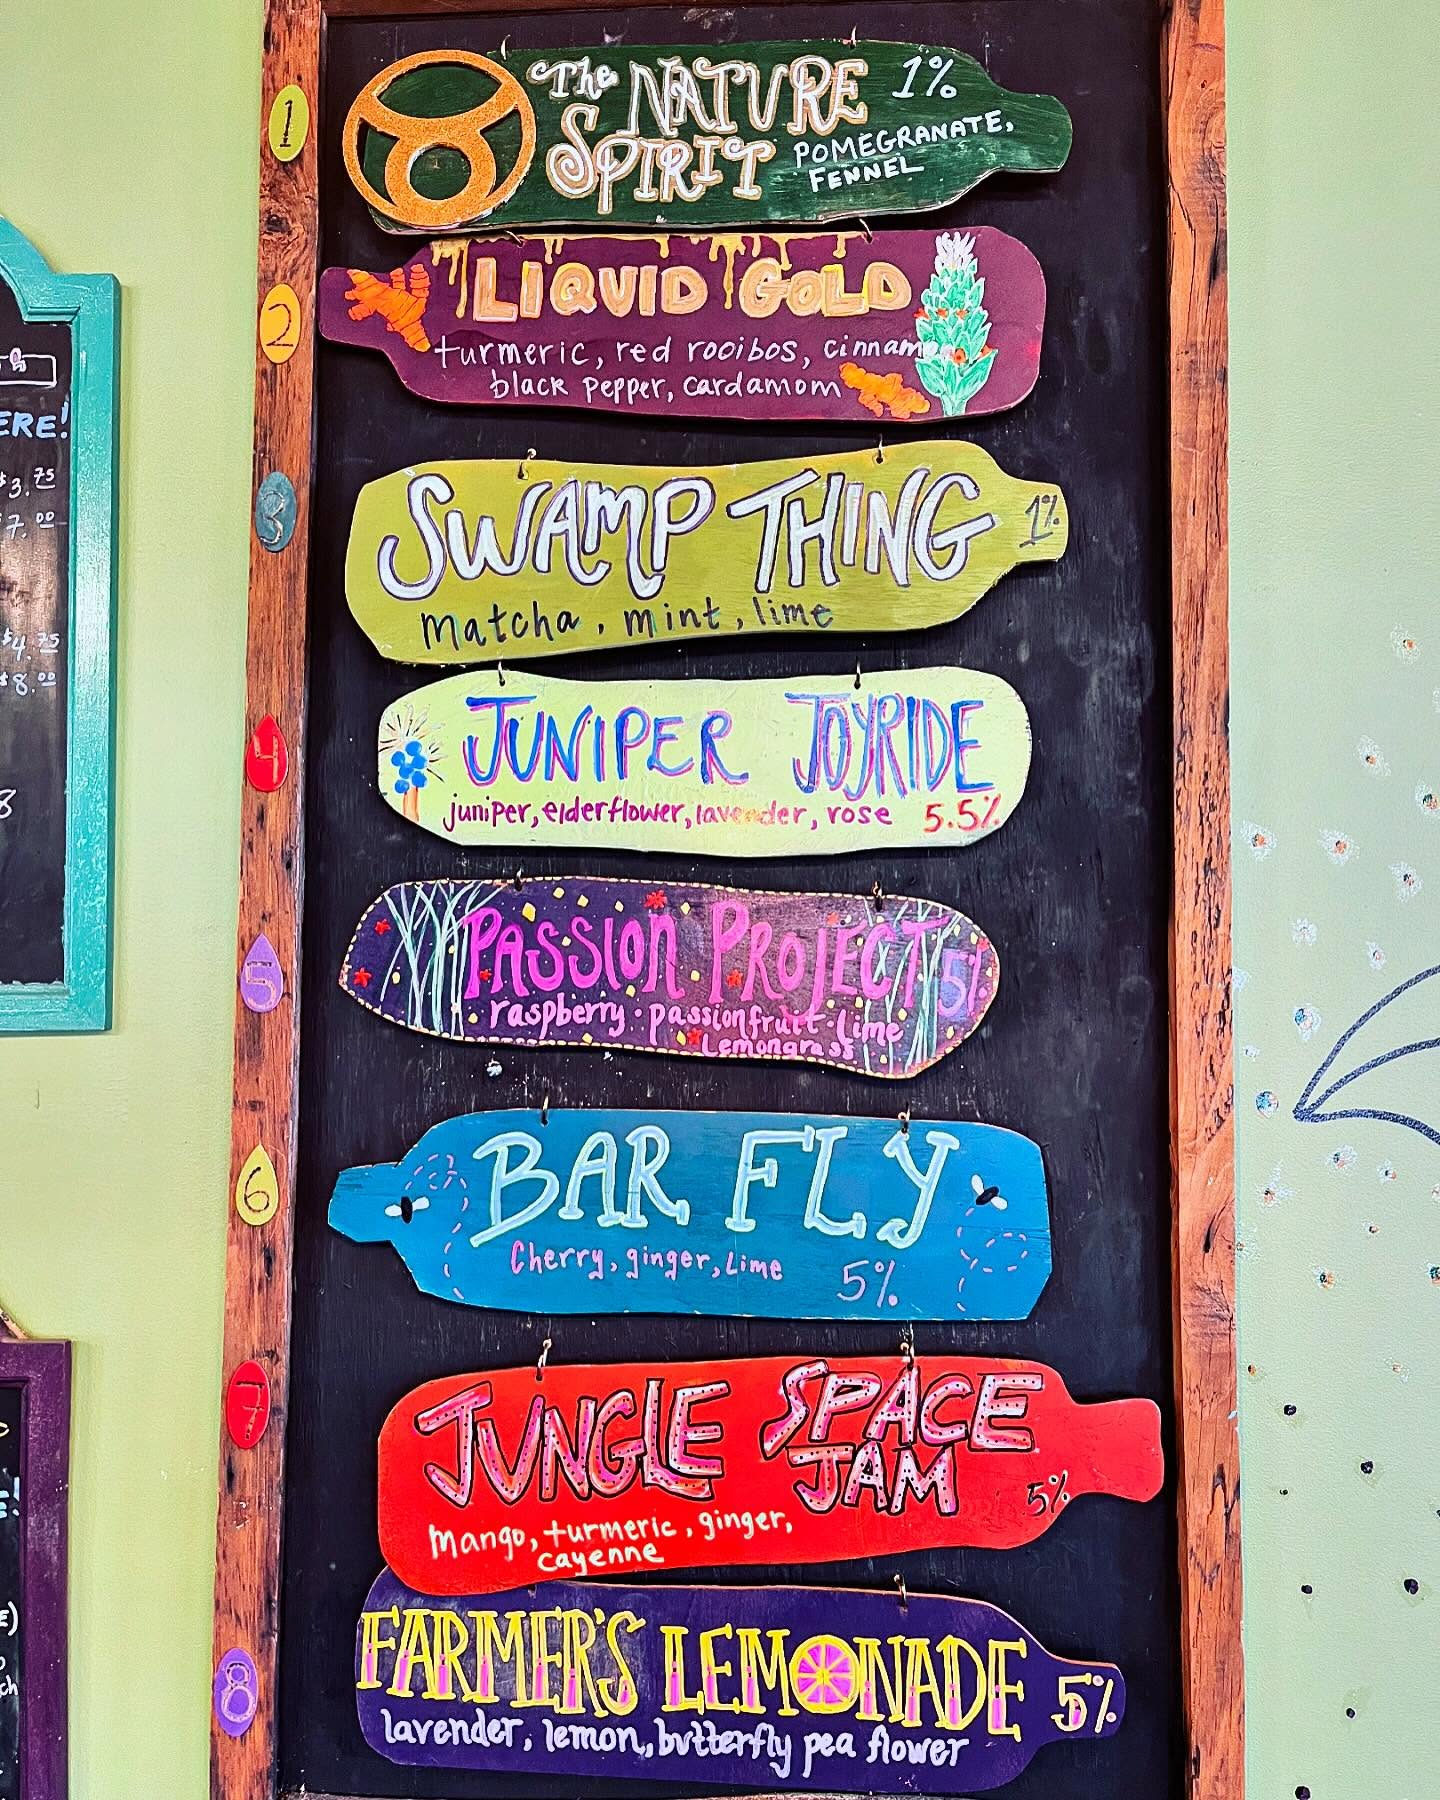 1
The NATURE 1%
SPIRIT POMEGRANATE,
FENNEL
2
LIQUID GOLD
turmeric, red rooibos, cinnamon
black pepper, cardamom
3
SWAMP THING 1%
matcha, mint, lime
4
JUNIPER JOYRIDE
juniper, elderflower, lavender, rose 5.5%
5
PASSION PROJECT 5%
raspberry · passionfruit · lime
Lemongrass
6
BAR FLY
Cherry, ginger, Lime 5%
7
JUNGLE SPACE
JAM 5%
mango, turmeric, ginger,
cayenne
8
FARMER'S LEMONADE 5%
lavender, lemon, butterfly pea flower
ERE!
$3.75
7.00
$4.75
$8.00
8